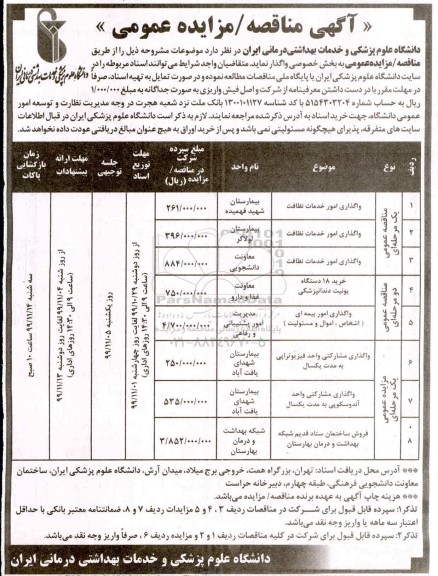 « آگهی مناقصه/مزایده عمومی »
دانشگاه علوم پزشکی و خدمات بهداشتی درمانی ایران
دانشگاه علوم پزشکی و خدمات بهداشتی درمانی ایران در نظر دارد موضوعات مشروحه ذیل را از طریق
مناقصه/مزایده عمومی به بخش خصوصی واگذار نماید. متقاضیان واجد شرایط می توانند اسناد مربوطه را در
سایت دانشگاه علوم پزشکی ایران یا پایگاه ملی مناقصات مطالعه نموده و در صورت تمایل به تهیه اسناد، صرفاً
در مهلت مقرر با در دست داشتن معرفینامه از شرکت و اصل فیش واریزی به صورت جداگانه به مبلغ ۱/۰۰۰/۰۰۰
ریال به حساب شماره ۵۱۵۴۳۰۳۲۰۴ با کد شناسه ۱۳۰۰۱۰۱۱۲۷ بانک ملت نزد شعبه هجرت در وجه مدیریت نظارت و توسعه امور
عمومی دانشگاه، جهت خرید اسناد به آدرس ذکر شده مراجعه نمایند. لازم به ذکر است دانشگاه علوم پزشکی ایران در قبال اطلاعات
سایت های متفرقه، پذیرای هیچگونه مسئولیتی نمی باشد و پس از خرید اوراق به هیچ عنوان مبالغ دریافتی عودت داده نخواهد شد.
ردیف | نوع | موضوع | نام واحد | مبلغ سپرده شرکت در مناقصه / مزایده (ریال) | مهلت توزیع اسناد | جلسه توجیهی | مهلت ارائه پیشنهادات | زمان بازگشائی پاکات
۱ | مناقصه عمومی یک مرحله‌ای | واگذاری امور خدمات نظافت | بیمارستان شهید فهمیده | ۲۶۱/۰۰۰/۰۰۰
۲ | واگذاری امور خدمات نظافت | بیمارستان لولاگر | ۳۹۶/۰۰۰/۰۰۰
۳ | واگذاری امور خدمات نظافت | معاونت دانشجویی | ۸۸۴/۰۰۰/۰۰۰
۴ | مناقصه عمومی دو مرحله‌ای | خرید ۱۸ دستگاه یونیت دندانپزشکی | معاونت غذا و دارو | ۷۵۰/۰۰۰/۰۰۰
۵ | واگذاری امور بیمه ای ( اشخاص ، اموال و مسئولیت ) | مدیریت امور پشتیبانی و رفاهی | ۴/۷۰۰/۰۰۰/۰۰۰
۶ | مزایده عمومی یک مرحله‌ای | واگذاری مشارکتی واحد فیزیوتراپی به مدت یکسال | بیمارستان شهدای یافت آباد | ۲۵۰/۰۰۰/۰۰۰
۷ | واگذاری مشارکتی واحد آندوسکوپی به مدت یکسال | بیمارستان شهدای یافت آباد | ۵۳۵/۰۰۰/۰۰۰
۸ | فروش ساختمان ستاد قدیم شبکه بهداشت و درمان بهارستان | شبکه بهداشت و درمان بهارستان | ۳/۸۵۲/۰۰۰/۰۰۰
از روز دوشنبه ۹۹/۱۰/۲۹ لغایت روز چهارشنبه ۹۹/۱۱/۰۱ (ساعت ۹ الی ۱۴:۳۰ روزهای اداری)
روز یکشنبه ۹۹/۱۱/۰۵
از روز شنبه ۹۹/۱۱/۰۴ لغایت روز دوشنبه ۹۹/۱۱/۱۳ (ساعت ۹ الی ۱۴:۳۰ روزهای اداری)
سه شنبه ۹۹/۱۱/۱۴ ساعت ۱۰ صبح
ParsNamadData
۰۲۱-۸۸۳۴۹۶۷۰-۵
*** آدرس محل دریافت اسناد: تهران، بزرگراه همت، خروجی برج میلاد، میدان آرش، دانشگاه علوم پزشکی ایران، ساختمان
معاونت دانشجویی فرهنگی، طبقه چهارم، دبیرخانه حراست
*** هزینه چاپ آگهی به عهده برنده مناقصه / مزایده می‌باشد.
تذکر۱: سپرده قابل قبول برای شرکت در مناقصات ردیف ۳، ۴ و ۵ مزایدات ردیف ۷ و ۸، ضمانتنامه معتبر بانکی با حداقل
اعتبار سه ماهه یا واریز وجه نقد می‌باشد.
تذکر۲: سپرده قابل قبول برای شرکت در کلیه مناقصات ردیف ۱ و ۲ و مزایده ردیف ۶ ، صرفاً واریز وجه نقد می‌باشد.
دانشگاه علوم پزشکی و خدمات بهداشتی درمانی ایران